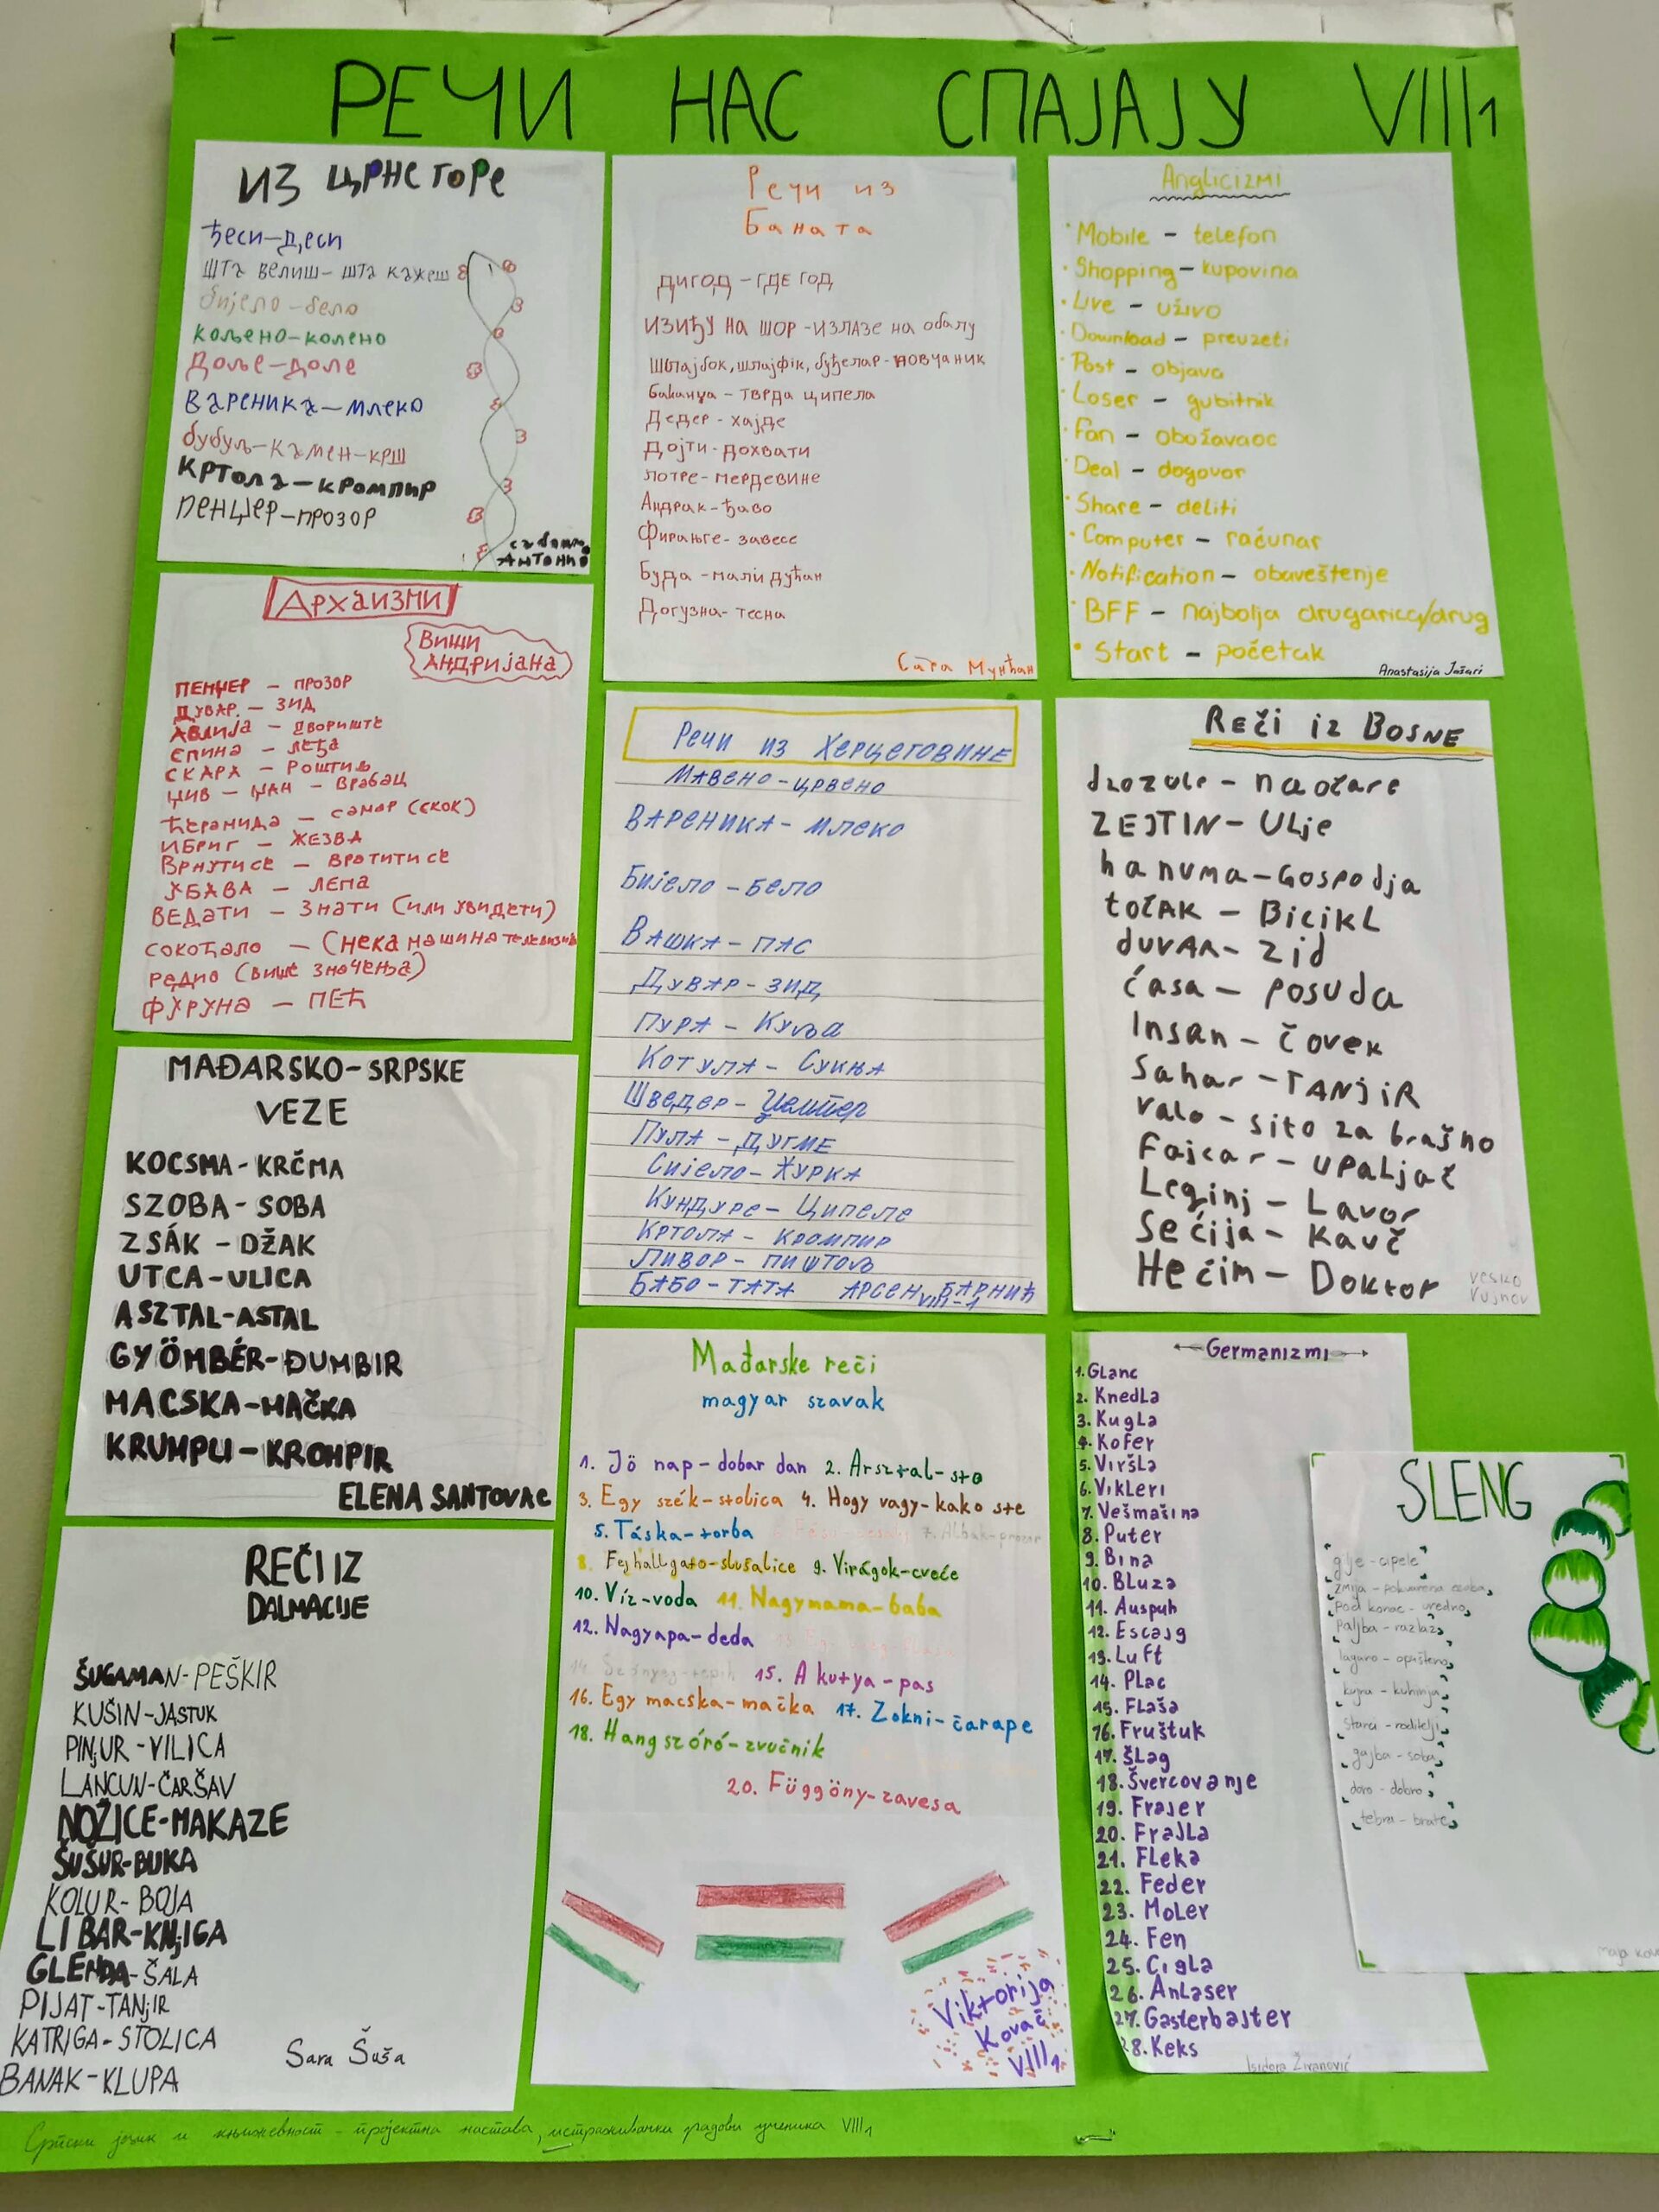 РЕЧИ НАС СПАЈАЈУ VIII1
ИЗ ЦРНЕ ГОРЕ
ђеси-деси
шта велиш- шта кажеш
бијело-бело
кољено-колено
Доље-доле
Вареника-млеко
бубуљ-камен-крш
Кртола-кромпир
пенџер-прозор
Антонио
Речи из
Баната
дигод-где год
изиђу на шор-излазе на обалу
Шлајбок, шлајфик, буђелар-новчаник
баканџа - тврда ципела
Дедер - хајде
Дојти-дохвати
лотре-мердевине
Андрак-ђаво
Фирањге-завесе
Буда-мали дућан
Догузна-тесна
Сара Мунћан
Anglicizmi
Mobile - telefon
Shopping - kupovina
Live - uživo
Download - preuzeti
Post - objava
Loser - gubitnik
Fan - obožavaoc
Deal - dogovor
Share - deliti
Computer - računar
Notification - obaveštenje
BFF - najbolja drugarica/drug
Start - početak
Anastasija Jašari
Архаизми
Виши
Андријана
пенџер - прозор
дувар - зид
авлија - двориште
епина - леђа
скара - роштиљ
џив - џан - врабац
ћерамида - самар (скок)
ибриг - жезва
врнути се - вратити се
убава - лепа
ведати - знати (или увидети)
сокоћало - (нека машина телевизија
радио (више значења)
фуруна - пећ
Речи из Херцеговине
Мавено-црвено
Вареника-млеко
Бијело-бело
Вашка-пас
Дувар-зид
Пура - Куља
Котула - Сукња
Шведер - џемпер
Пула - дугме
Сијело-Журка
Кундуре-Ципеле
Кртола-кромпир
Ливор-пиштољ
Бабо-тата Арсен Барнић
VIII-1
Reči iz Bosne
dzozule - naočare
zejtin - ulje
hanuma - Gospodja
točak - Bicikl
duvar - zid
ćasa - posuda
Insan - čovek
Sahar - Tanjir
valo - sito za brašno
Fajcar - upaljač
Leginj - Lavor
Sećija - Kauč
Hećim - Doktor
Vesko
Vujnov
MAĐARSKO-SRPSKE
VEZE
KOCSMA-KRČMA
SZOBA-SOBA
ZSÁK-DŽAK
UTCA-ULICA
ASZTAL-ASTAL
GYÖMBÉR-ĐUMBIR
MACSKA-MAČKA
KRUMPLI-KROMPIR
ELENA SANTOVAC
Mađarske reči
magyar szavak
1. Jö nap-dobar dan 2. Arsztal-sto
3. Egy szék-stolica 4. Hogy vagy-kako ste
5. Táska-torba 7. Ablak-prozor
8. Fejhallgato-slušalice 9. Virágok-cveće
10. Víz-voda 11. Nagymama-baba
12. Nagyapa-deda
14. Szőnyeg-tepih 15. A kutya-pas
16. Egy macska-mačka 17. Zokni-čarape
18. Hangszóró-zvučnik
20. Függöny-zavesa
Viktorija
Kovač
VIII1
Germanizmi
1. Glanc
2. Knedla
3. Kugla
4. Kofer
5. Viršla
6. Vikleri
7. Vešmašina
8. Puter
9. Bina
10. Bluza
11. Auspuh
12. Escajg
13. Luft
14. Plac
15. Flaša
16. Fruštuk
17. Šlag
18. Švercovanje
19. Frajer
20. Frajla
21. Fleka
22. Feder
23. Moler
24. Fen
25. Cigla
26. Anlaser
27. Gasterbajter
28. Keks
Isidora Živanović
SLENG
glje-cipele
zmija-pokvarena osoba
pod konac-uredno
paljba-razlaz
lagano-opušteno
kujna-kuhinja
starci-roditelji
gajba-soba
doro-dobro
tebra-brate
Maja
REČI IZ
DALMACIJE
ŠUGAMAN-PEŠKIR
KUŠIN-JASTUK
PINJUR-VILICA
LANCUN-ČARŠAV
NOŽICE-MAKAZE
ŠUŠUR-BUKA
KOLUR-BOJA
LIBAR-KNJIGA
GLENDA-ŠALA
PIJAT-TANJIR
KATRIGA-STOLICA
BANAK-KLUPA
Sara Šuša
Српски језик и књижевност - пројектна настава, истраживачки радови ученика VIII1